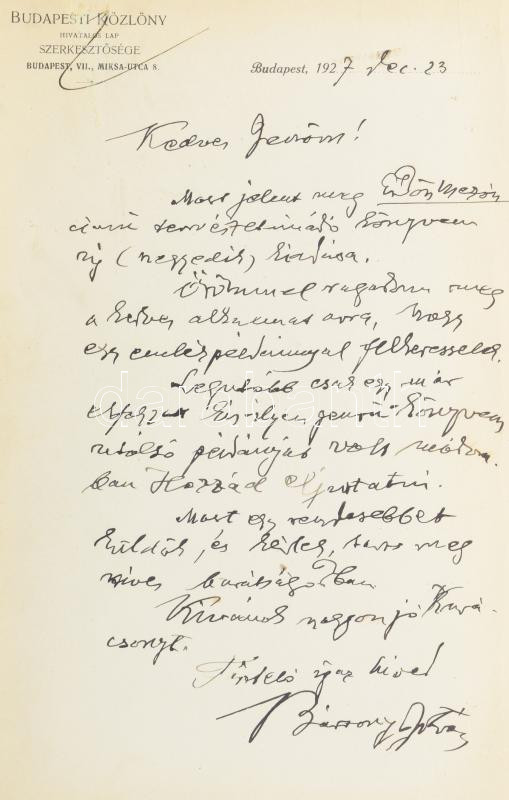 BUDAPESTI KÖZLÖNY
HIVATALOS LAP
SZERKESZTŐSÉGE
BUDAPEST, VII., MIKSA-UTCA 8.
Budapest, 1927 dec. 23
Kedves Jenőm!
Most jelent meg Erdőn Mezőn
című természetimádó könyvem
új (negyedik) kiadása.
Örömmel ragadom meg
a kedves alkalmat arra, hogy
egy emlékpéldánnyal felkeresselek.
Legutóbb csak egy már
könyvem
utolsó példányát volt módom-
ban Hozzád eljuttatni.
Most egy rendesebbet
küldök, és kérlek, tarts meg
szíves barátságodban
Kívánok nagyon jó Kará-
csonyt.
Tisztelő igaz híved
Bársony István
darabanth